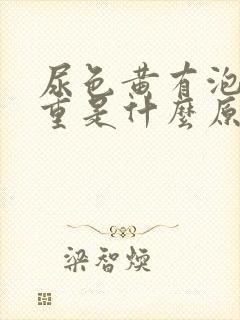 尿色黄有泡
重是什麼原
梁智煐